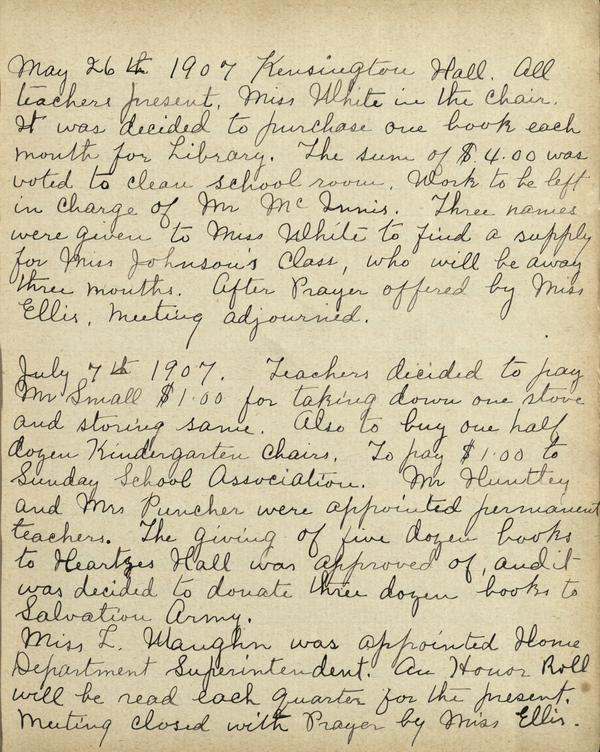 May 26th 1907 Kensington Hall. All
teachers present, Miss White in the chair.
It was decided to purchase one book each
month for Library. The sum of $4.00 was
voted to clean school room. Work to be left
in charge of Mr McInnis. Three names
were given to Miss White to find a supply
for Miss Johnson's Class, who will be away
three months. After Prayer offered by Miss
Ellis, Meeting adjourned.
July 7th 1907. Teachers decided to pay
Mr Small $1.00 for taking down one stove
and storing same. Also to buy one half
dozen Kindergarten Chairs. To pay $1.00 to
Sunday School Association. Mr Huntley
and Mrs Puncher were appointed permanent
teachers. The giving of five dozen books
to Heartzes Hall was approved of, and it
was decided to donate three dozen books to
Salvation Army.
Miss L. Maughn was appointed Home
Department Superintendent. An Honor Roll
will be read each quarter for the present.
Meeting closed with Prayer by Miss Ellis.